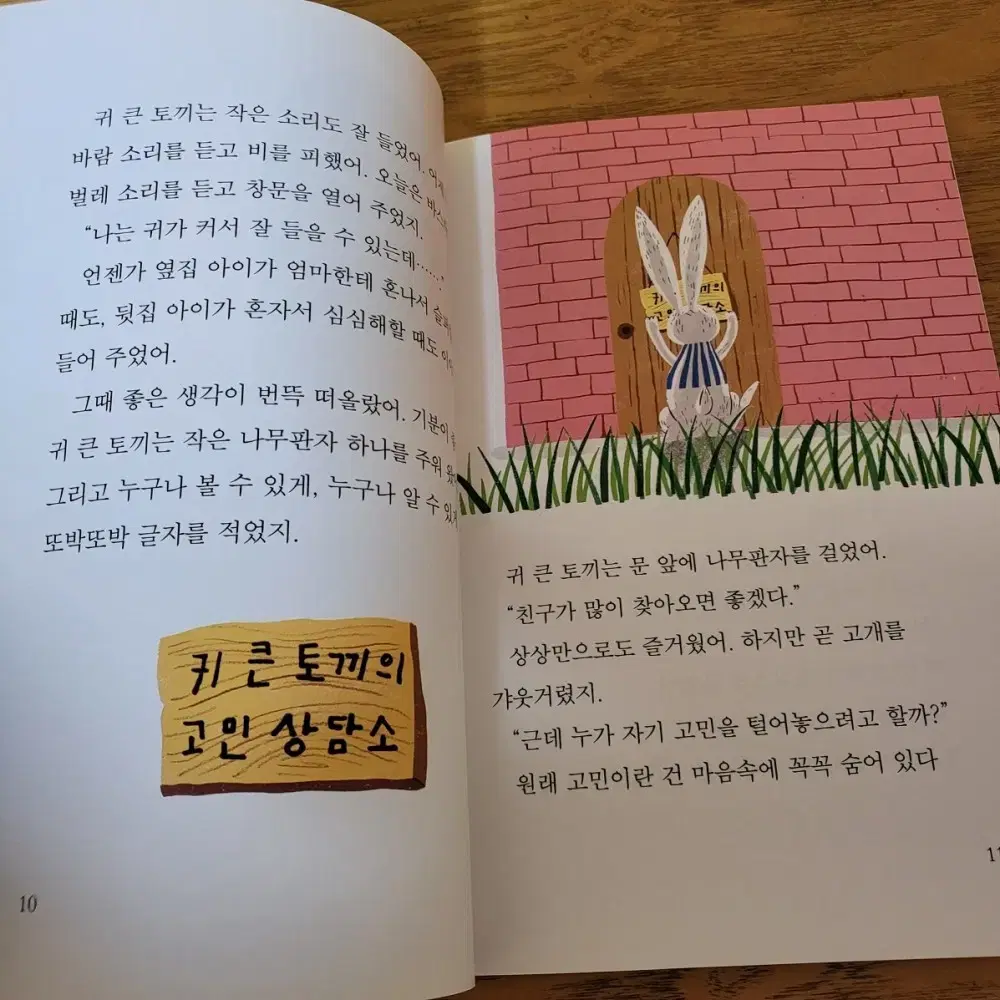 귀 큰 토끼는 작은 소리도 잘 들었어.
바람 소리를 듣고 비를 피했어. 오늘은
벌레 소리를 듣고 창문을 열어 주었지.
“나는 귀가 커서 잘 들을 수 있는데……
언젠가 옆집 아이가 엄마한테 혼나서
때도, 뒷집 아이가 혼자서 심심해할 때도
들어 주었어.
그때 좋은 생각이 번뜩 떠올랐어. 기분이
귀 큰 토끼는 작은 나무판자 하나를 주워
그리고 누구나 볼 수 있게, 누구나 알 수
또박또박 글자를 적었지.
귀 큰 토끼의
고민 상담소
10
귀 큰 토끼의
고민 상담소
귀 큰 토끼는 문 앞에 나무판자를 걸었어.
“친구가 많이 찾아오면 좋겠다.”
상상만으로도 즐거웠어. 하지만 곧 고개를
갸웃거렸지.
“근데 누가 자기 고민을 털어놓으려고 할까?”
원래 고민이란 건 마음속에 꼭꼭 숨어 있다
11